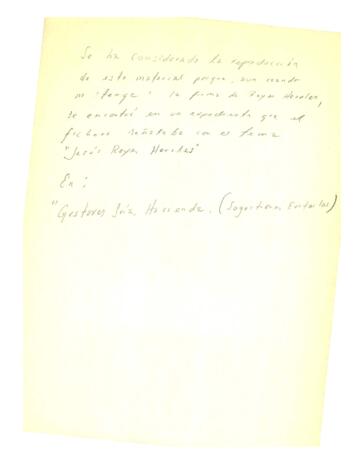 Se ha considerado la reproducción
de este material porque, aun cuando
no "tenga" la firma de Reyes Heroles,
se encontró en un expediente que el
fichero señalaba con el tema
"Jesús Reyes Heroles"
En:
"Gestores Sría. Hacienda. (